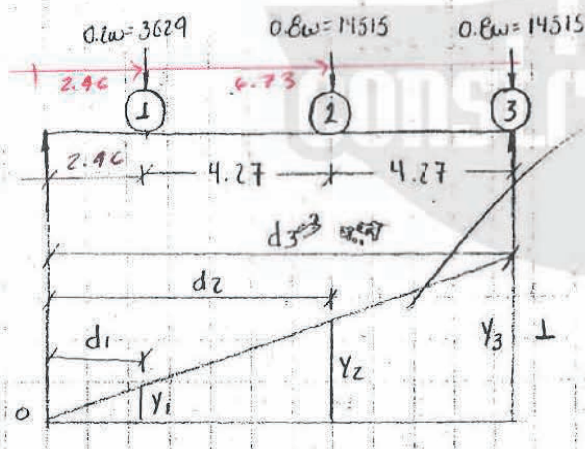 0.2w=3629 0.8w=14515 0.8w=14515
2.46 6.73
1 2 3
2.46 4.27 4.27
d3
d2
d1
Y1 Y2 Y3 1
0